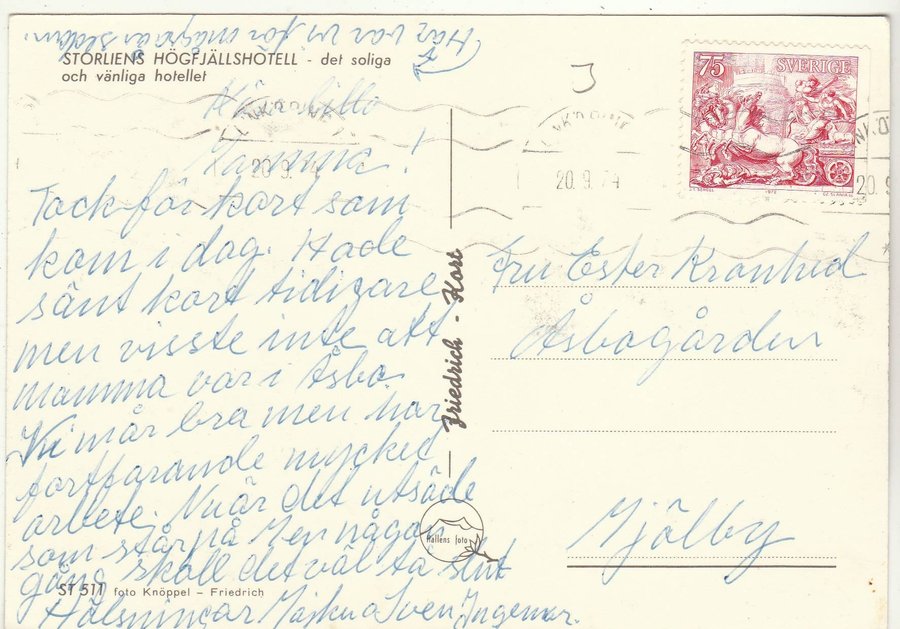 Här var vi för några år sedan.
STORLIENS HÖGFJÄLLSHOTELL - det soliga
och vänliga hotellet
Kära lilla
Mamma!
Tack för kort som
kom i dag. Hade
sänt kort tidigare
men visste inte att
mamma var i Åsbo
Vi mår bra men har
fortfarande mycket
arbete. Nu är det utsäde
som står på Men någon
gång skall det väl ta slut
ST 511 foto Knöppel – Friedrich
Hälsningar Maj Sven, Ingemar.
Friedrich - Kort
Hallens foto
75 SVERIGE
20.9.74
20.9.74
20.9
Fru Ester Krantud
Åsbogården
Mjölby